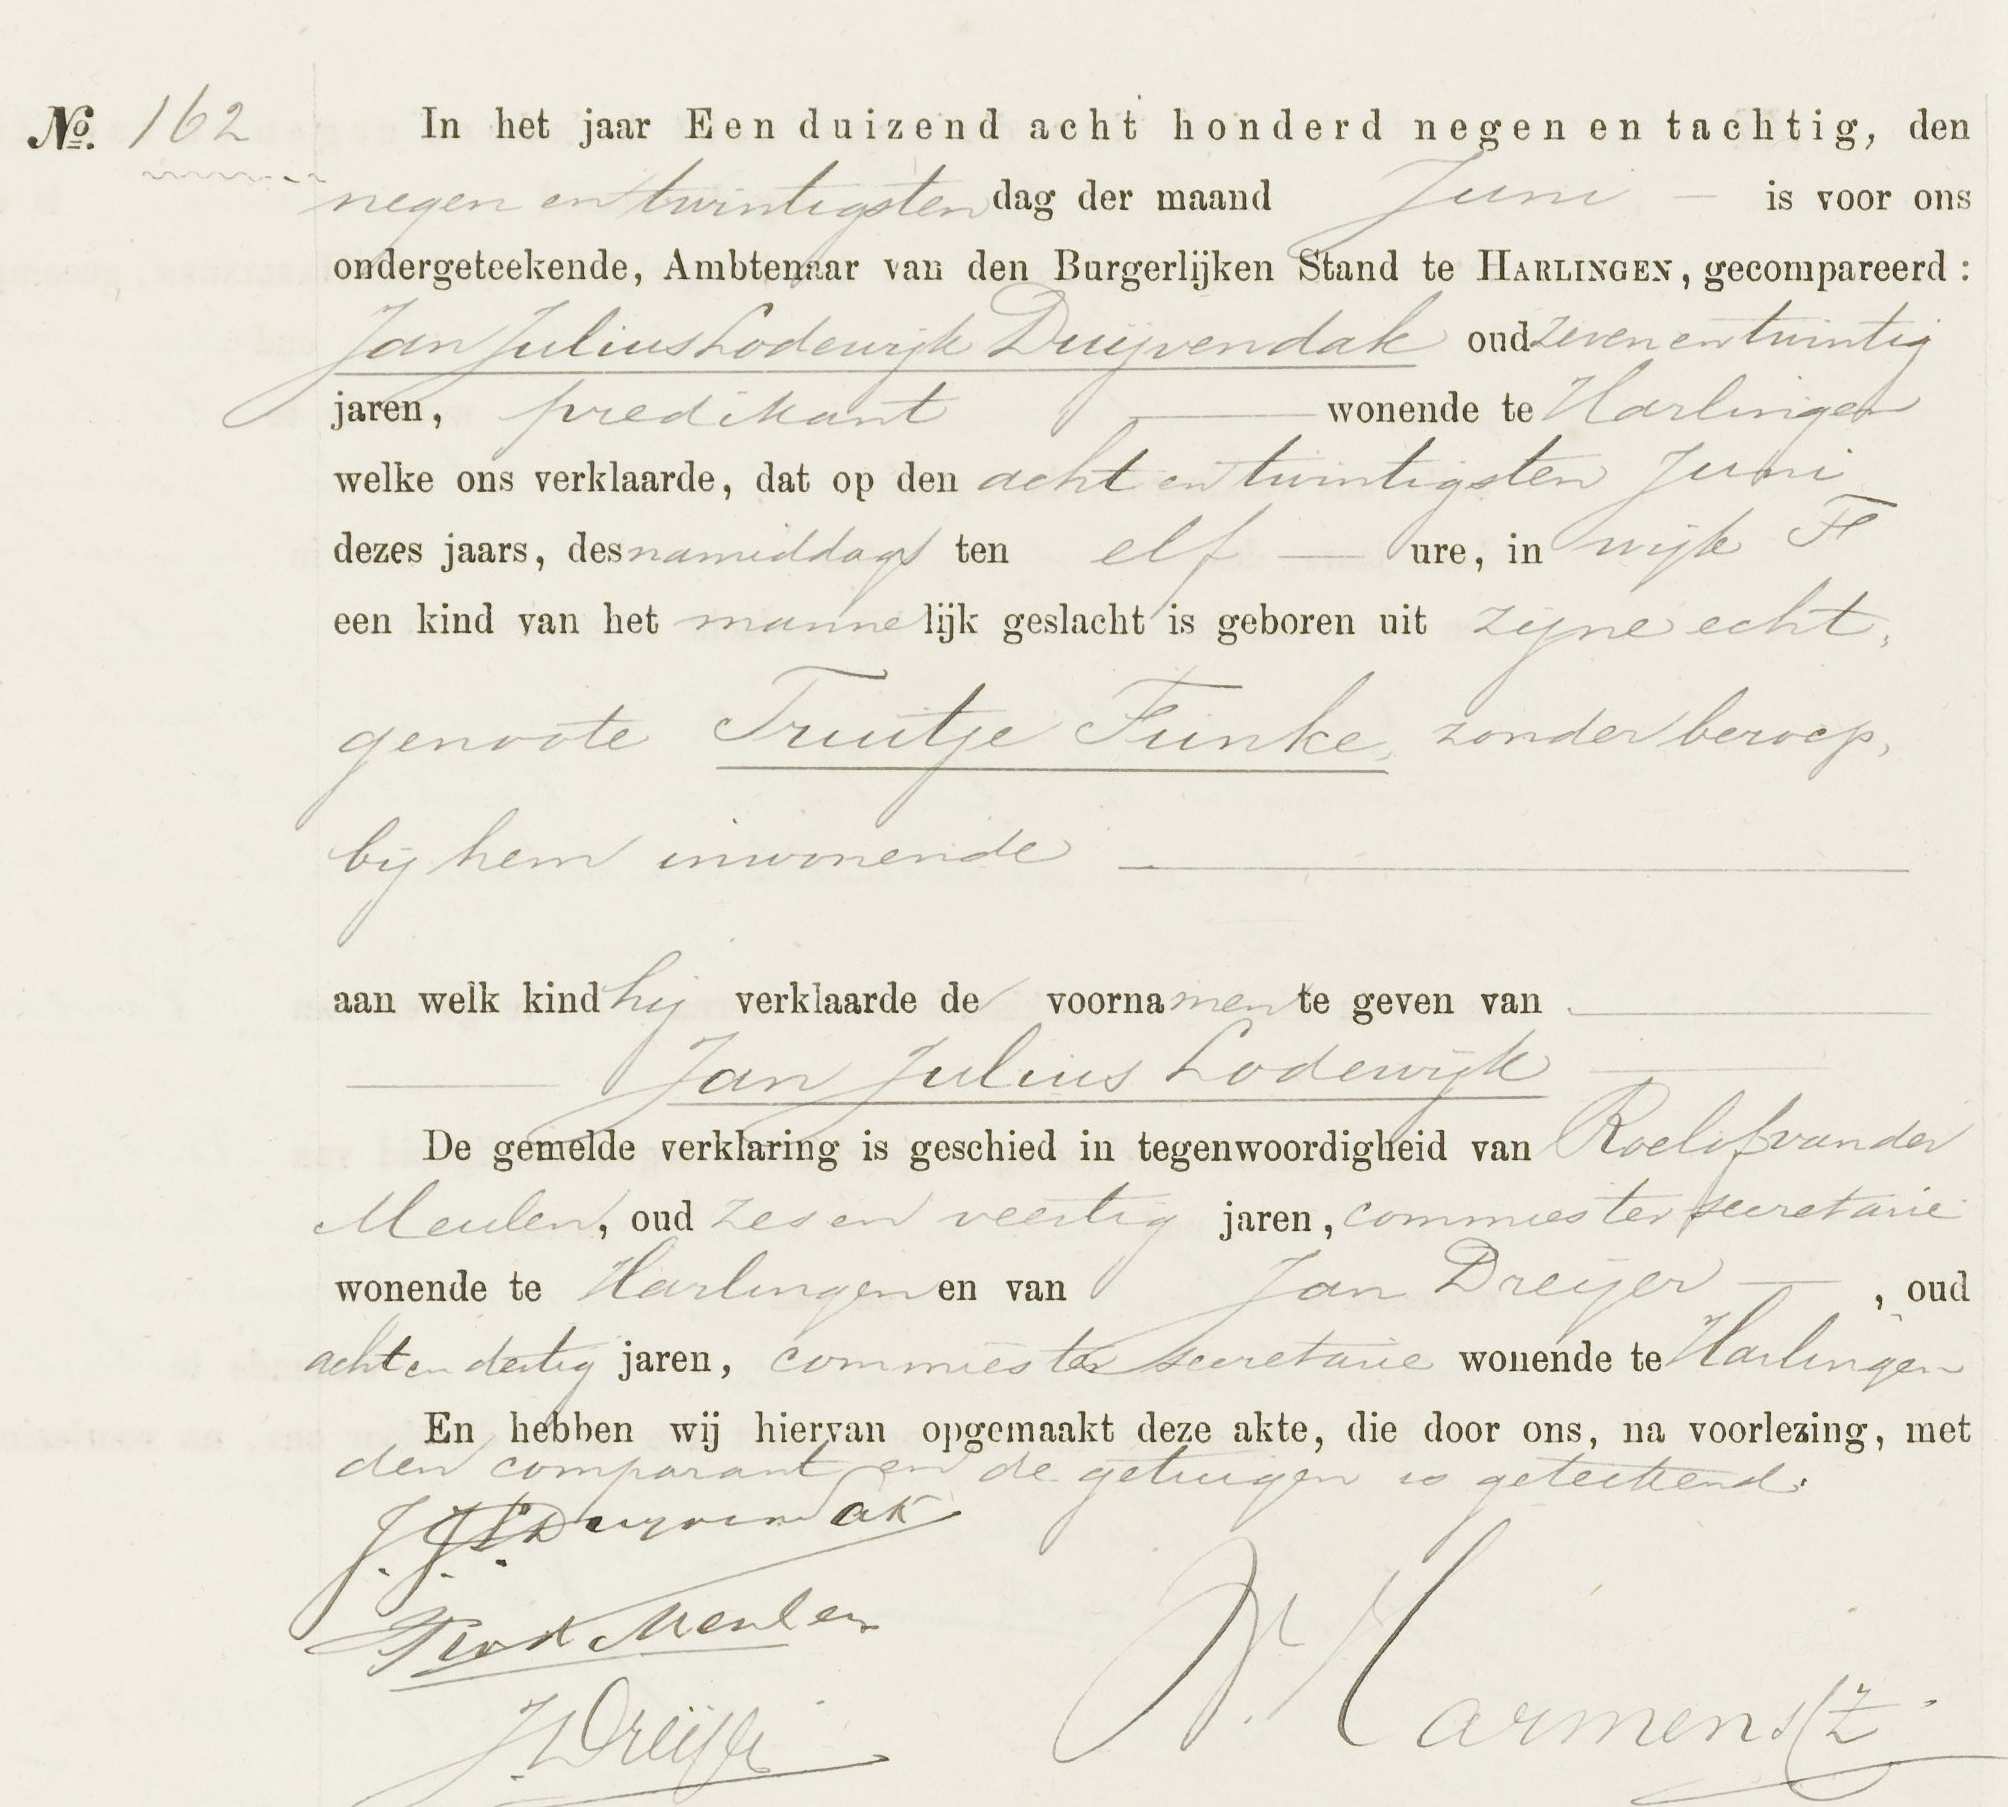 No. 162 In het jaar Een duizend acht honderd negen en tachtig, den
negen en twintigsten dag der maand Juni — is voor ons
ondergeteekende, Ambtenaar van den Burgerlijken Stand te HARLINGEN, gecompareerd:
Jan Julius Lodewijk Duijvendak oud zeven en twintig
jaren, predikant — wonende te Harlingen
welke ons verklaarde, dat op den acht en twintigsten Juni
dezes jaars, des namiddags ten elf — ure, in wijk F
een kind van het mannelijk geslacht is geboren uit zijne echt,
genoote Truitje Funke, zonder beroep,
bij hem inwonende —
aan welk kind hij verklaarde de voornamen te geven van —
— Jan Julius Lodewijk —
De gemelde verklaring is geschied in tegenwoordigheid van Roelof van der
Meulen, oud zes en veertig jaren, commies ter secretarie
wonende te Harlingen en van Jan Dreijer —, oud
acht en dertig jaren, commies ter secretarie wonende te Harlingen
En hebben wij hiervan opgemaakt deze akte, die door ons, na voorlezing, met
den comparant en de getuigen is geteekend.
J. J. L. Duyvendak
R v d Meulen
J. Dreijer
Harmens Z